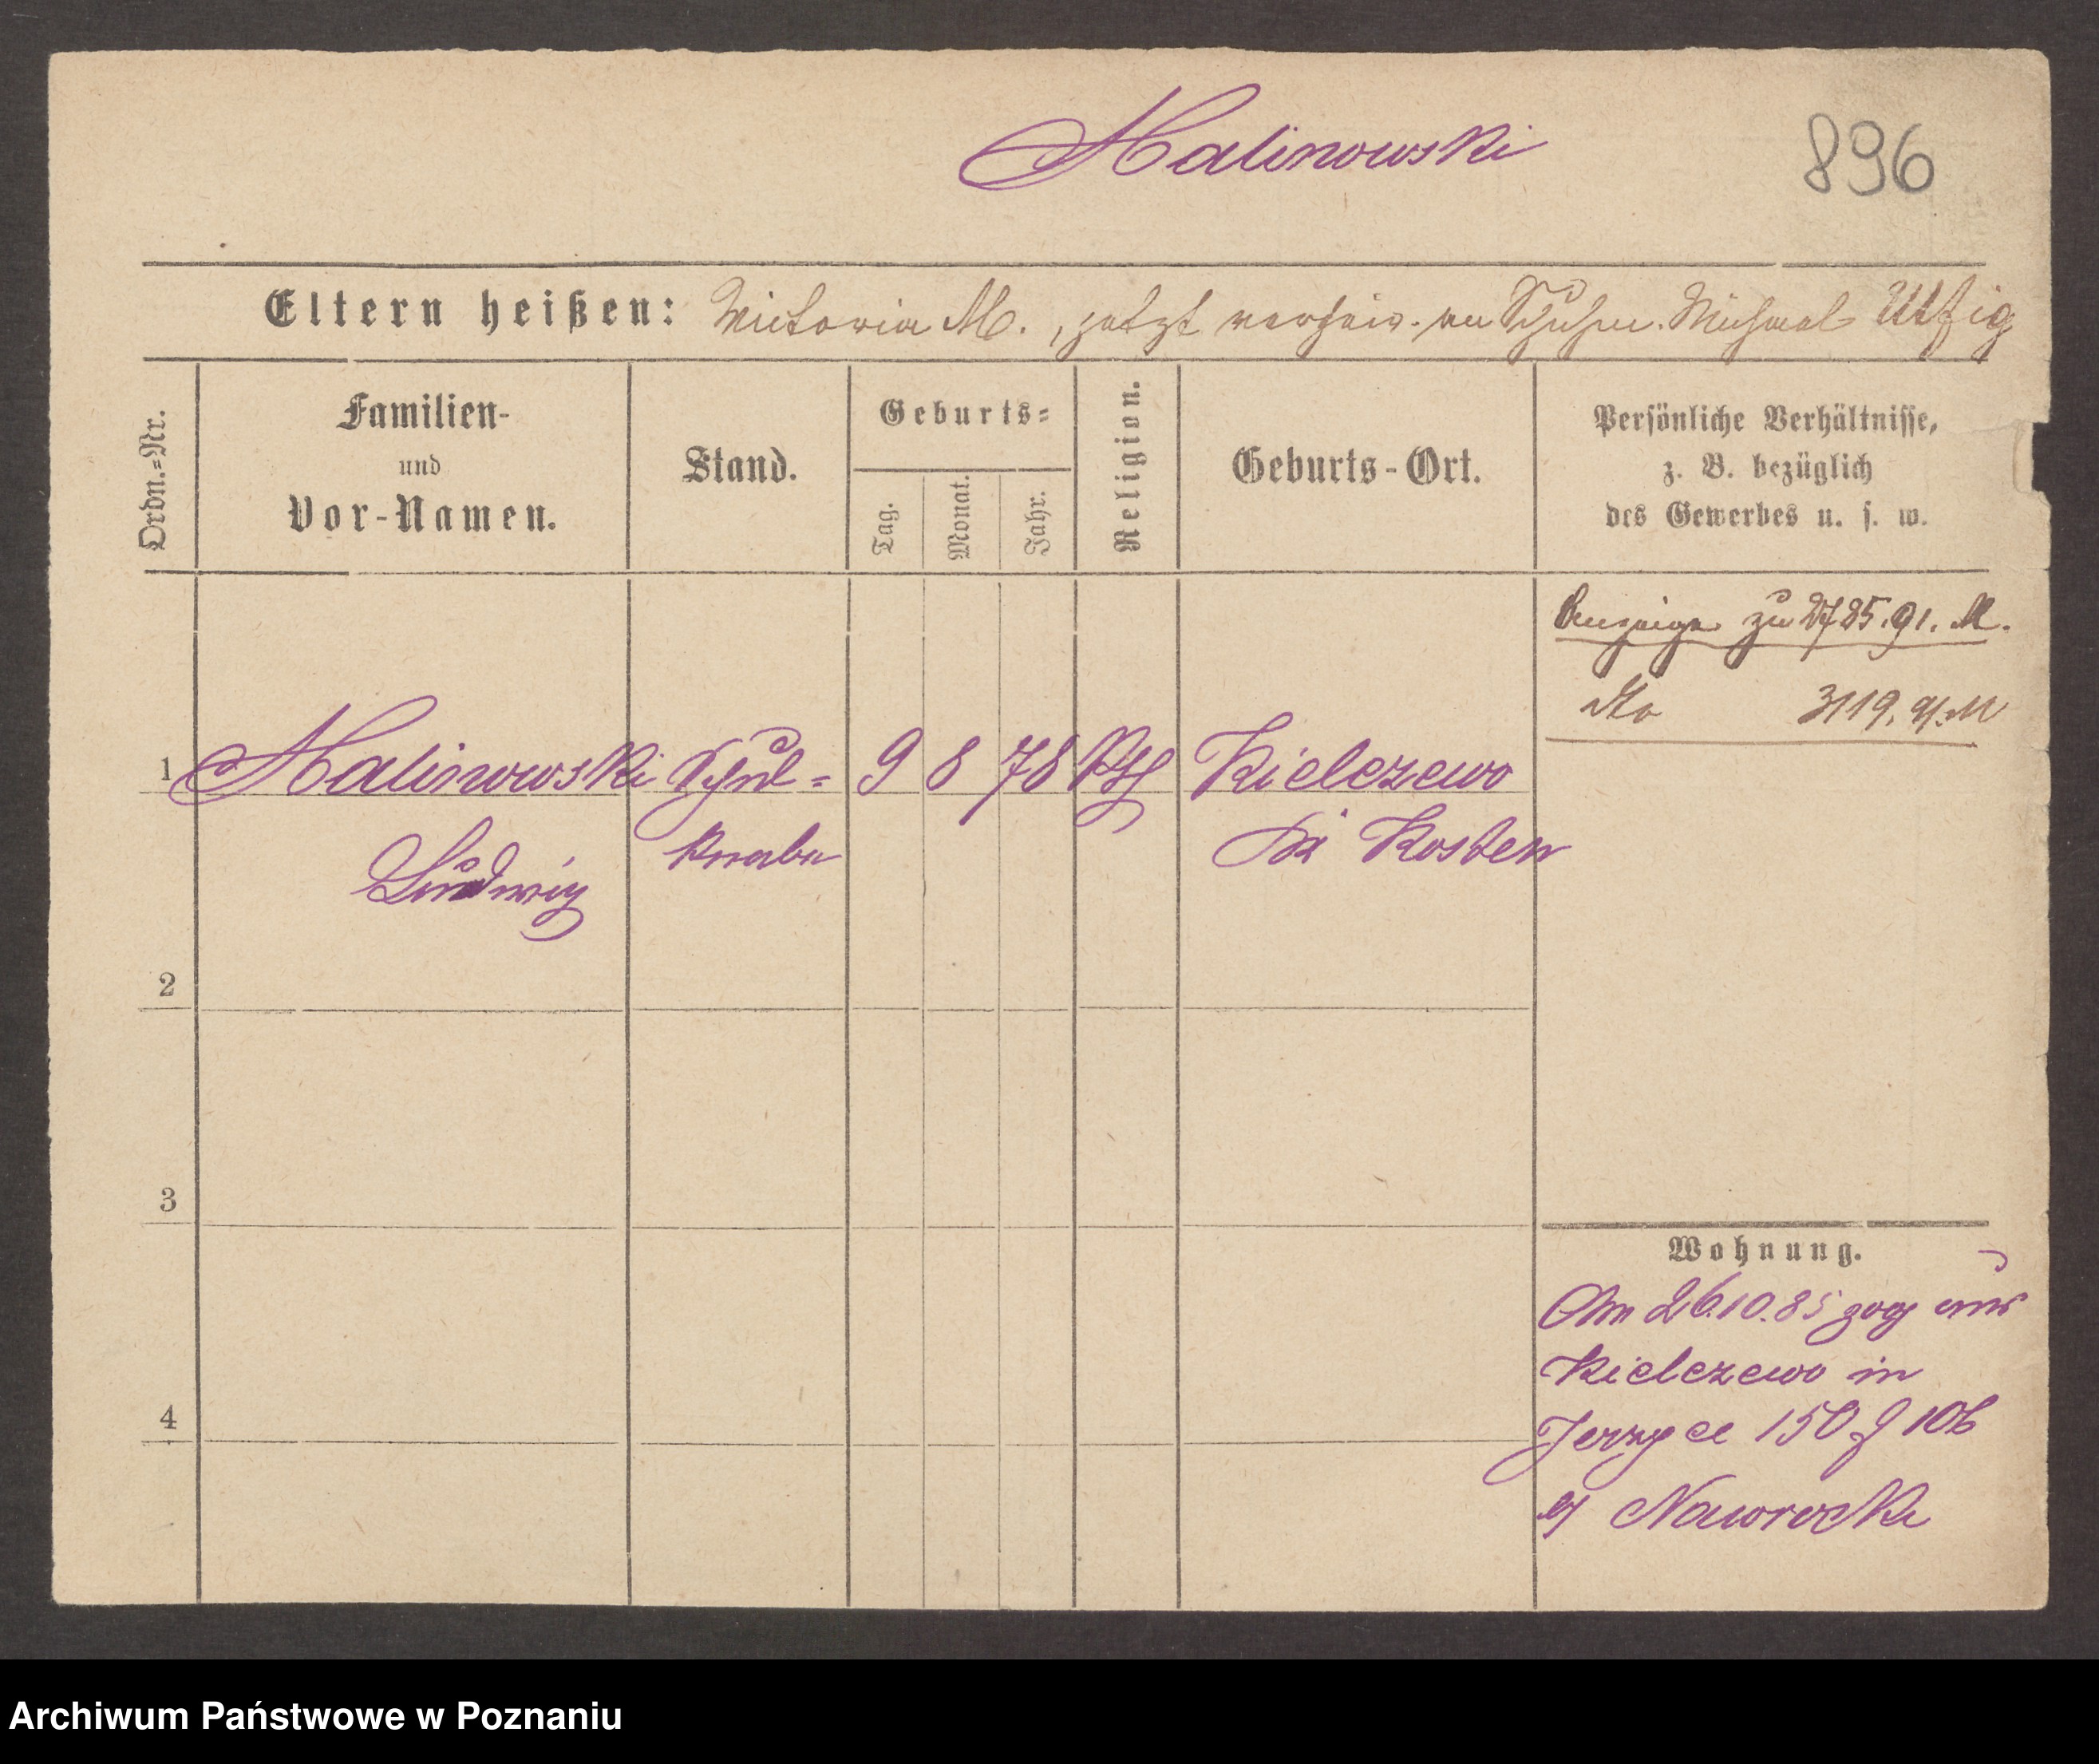 Malinowski
896
Eltern heißen: Victoria M., jetzt verheir. an Schuhm. Michael Utfig
Ordn.=Nr.
Familien-
und
Vor-Namen.
Stand.
Geburts=
Tag.
Monat.
Jahr.
Religion.
Geburts-Ort.
Persönliche Verhältnisse,
z. B. bezüglich
des Gewerbes u. s. w.
Anzeige zu 2785.91. M.
3119. 91. M
1 Malinowski Schul= 9 8 78 Kth Kielczewo
Ludwig knabe Kr Kosten
2
3
4
Wohnung.
Am 26.10.85 zog aus
Kielczewo in
Jerzyce 150 f 106
Nawrocki
Archiwum Państwowe w Poznaniu